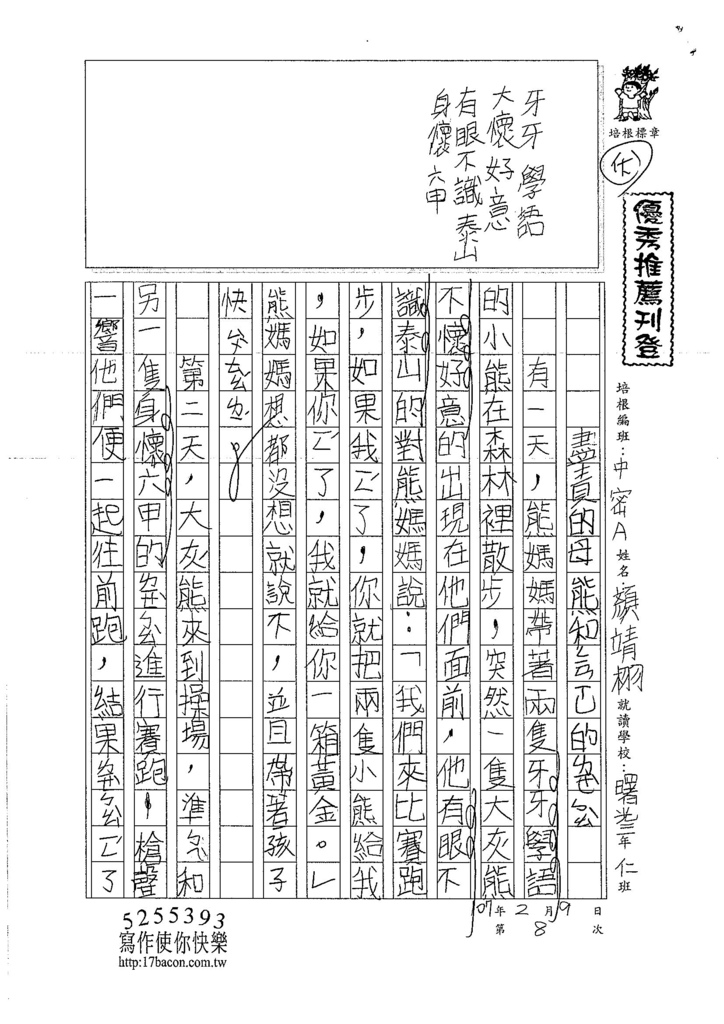 培根標章
優秀推薦刊登
培根編班：中密A 姓名：顏靖栩 就讀學校：曙光三年仁班
107年2月9日
第8次
牙牙學語
大懷好意
有眼不識泰山
身懷六甲
盡責的母熊和
的
有一天，熊媽媽帶著兩隻牙牙學語
的小熊在森林裡散步，突然一隻大灰熊
不懷好意的出現在他們面前，他有眼不
識泰山的對熊媽媽說：「我們來比賽跑
步，如果我ㄧㄥˊ了，你就把兩隻小熊給我
，如果你ㄧㄥˊ了，我就給你一箱黃金。」
熊媽媽想都沒想就說不，並且帶著孩子
快
第二天，大灰熊來到操場，準ㄅㄟˋ和
另一隻身懷六甲的進行賽跑，槍聲
一響他們便一起往前跑，結果
5255393
寫作使你快樂
http:17bacon.com.tw